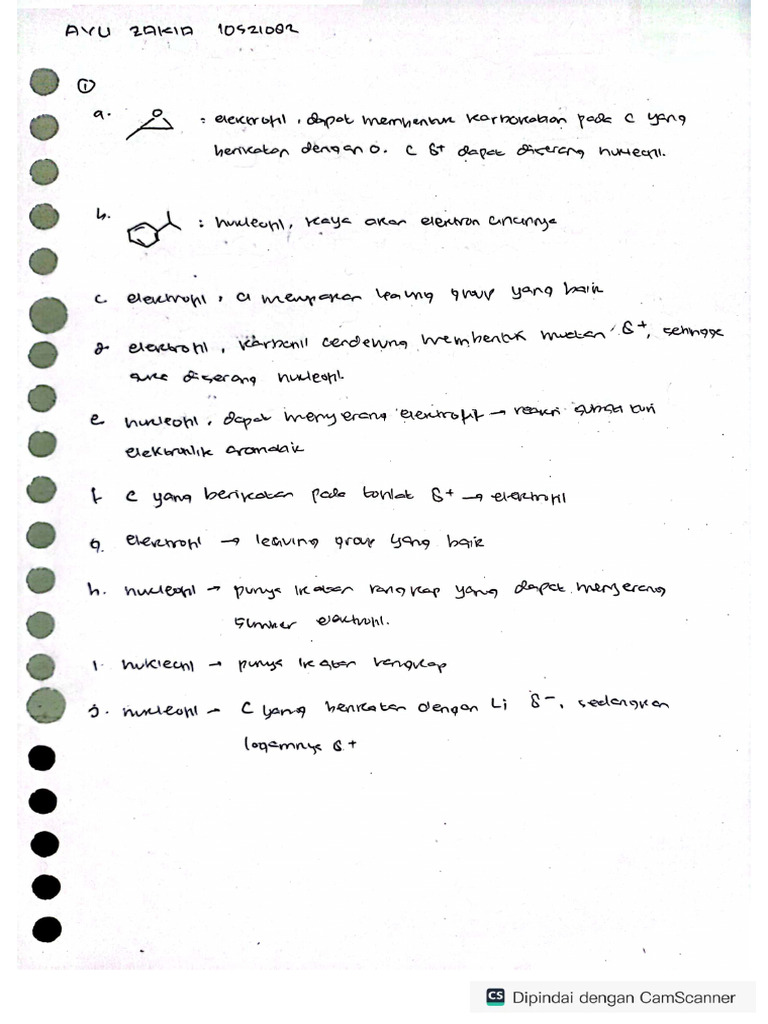 AYU ZAKIA 10521082
①
a. O : elektrofil, dapat membentuk karbokation pada C yang
berikatan dengan O. C δ+ dapat diserang nukleofil.
b. : nukleofil, kaya akan elektron cincinnya
c. elektrofil, Cl merupakan leaving group yang baik
d. elektrofil, karbonil cenderung membentuk muatan δ+, sehingga
diserang nukleofil.
e. nukleofil, dapat menyerang elektrofil → reaksi substitusi
elektrofilik aromatik
f. C yang berikatan pada tosilat δ+ → elektrofil
g. elektrofil → leaving group yang baik
h. nukleofil → punya ikatan rangkap yang dapat menyerang
sumber elektrofil.
i. nukleofil → punya ikatan rangkap
j. nukleofil → C yang berikatan dengan Li δ-, sedangkan
logamnya δ+
CS Dipindai dengan CamScanner